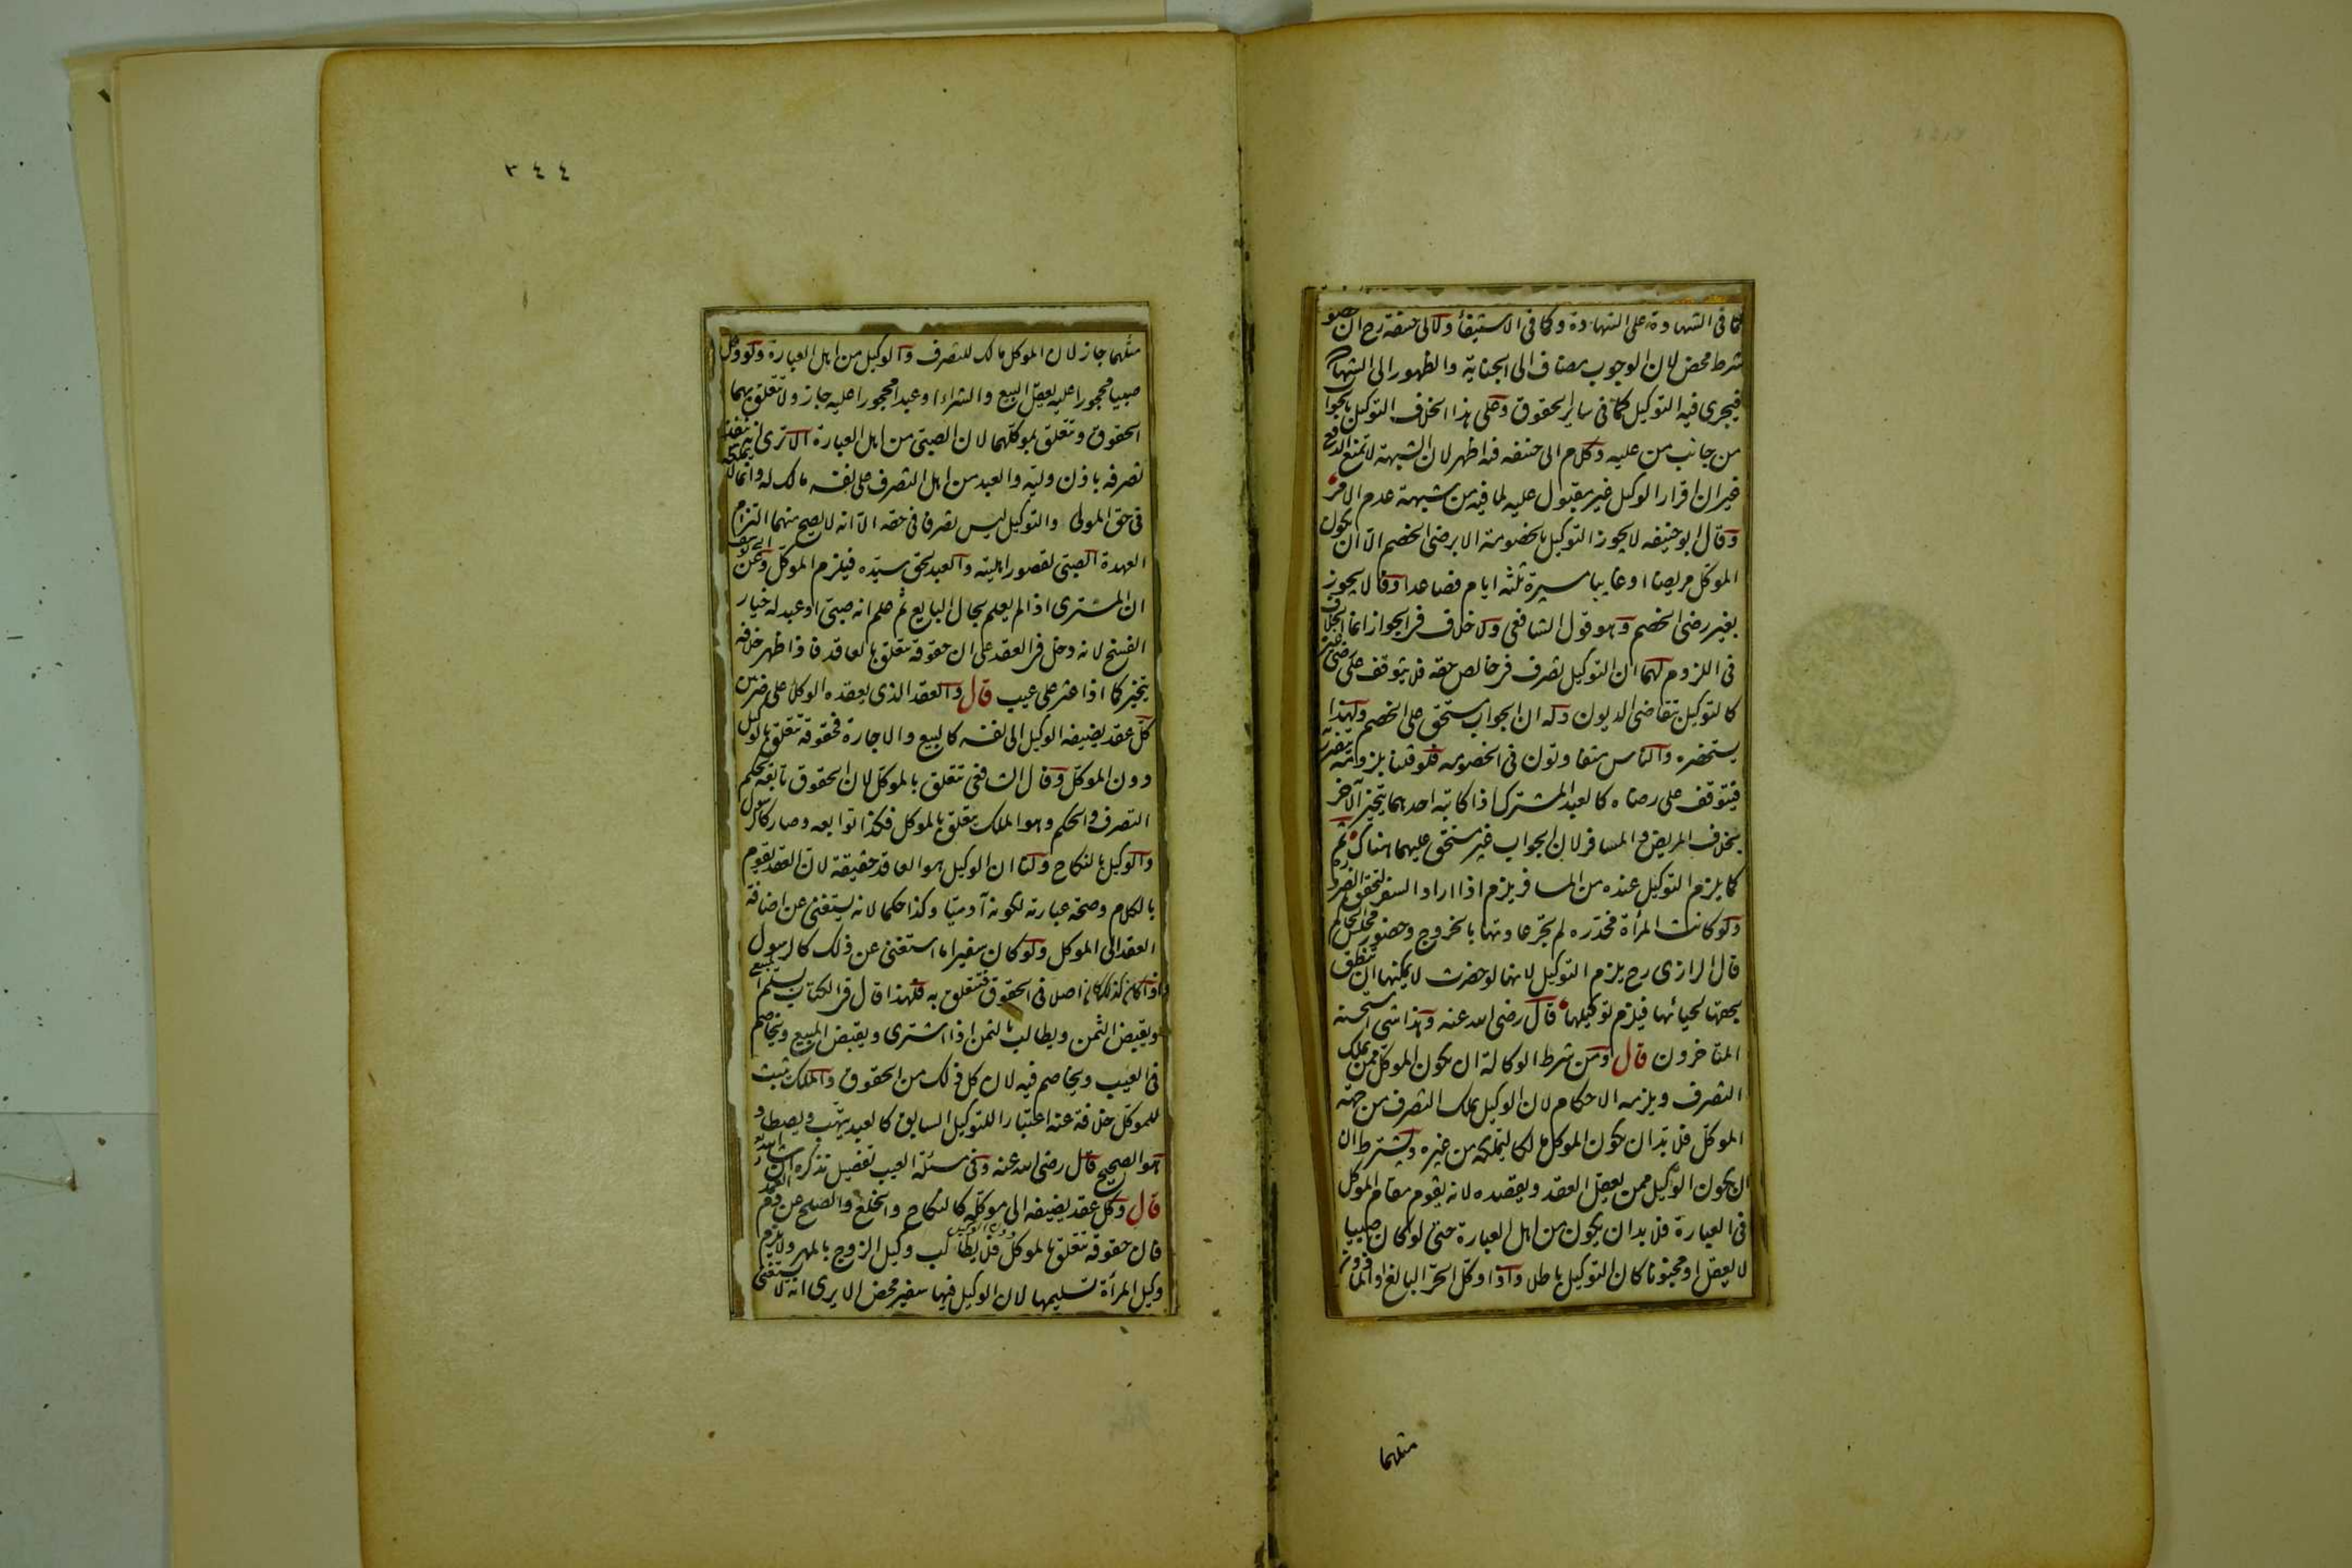 كما فى الشهادة على الشهادة وكما فى الاستيفاء ولابى حنيفة رح ان الخصومة
شرط محض لان الوجوب مضاف الى الجناية والظهور الى الشهادة
فيجرى فيه التوكيل كما فى ساير الحقوق وعلى هذا الخلاف التوكيل بالجواب
من جانب من عليه وكلام ابى حنيفه فيه اظهر لان الشبهة لا تمنع الدفع
غير ان اقرار الوكيل غير مقبول عليه لما فيه من شبهة عدم الامر
وقال ابو حنيفه لا يجوز التوكيل بالخصومة الا برضى الخصم الا ان يكون
الموكل مريضا او غايبا مسيرة ثلثه ايام فصاعدا وقالا يجوز
بغير رضى الخصم وهو قول الشافعى ولا خلاف فى الجواز انما الخلاف
فى اللزوم لهما ان التوكيل تصرف فى خالص حقه فلا يتوقف على رضى غيره
كالتوكيل بتقاضى الديون وله ان الجواب مستحق على الخصم ولهذا
يستحضره والناس متفاوتون فى الخصومه فلو قلنا بلزومه يتضرر به
فيتوقف على رضاه كالعبد المشترك اذا كاتبه احدهما يتخير الآخر
بخلاف المريض والمسافر لان الجواب غير مستحق عليهما هناك ثم
كما يلزم التوكيل عنده من المسافر يلزم اذا اراد السفر لتحقق الضرورة
ولو كانت المرأة مخدره لم يجر عادتها بالخروج وحضور مجلس الحاكم
قال الرازى رح يلزم التوكيل لانها لو حضرت لا يمكنها ان تنطق
بحقها لحيائها فيلزم توكيلها قال رضى الله عنه وهذا شى استحسنه
المتاخرون قال ومن شرط الوكالة ان يكون الموكل ممن يملك
التصرف ويلزمه الاحكام لان الوكيل يملك التصرف من جهة
الموكل فلا بد ان يكون الموكل مالكا ليملكه من غيره ويشترط ان
ان يكون الوكيل ممن يعقل العقد ويقصده لانه يقوم مقام الموكل
فى العبارة فلا بد ان يكون من اهل العبارة حتى لو كان صبيا
لا يعقل او مجنونا كان التوكيل باطلا واذا وكل الحر البالغ او الماذون
مثلهما
٣٤٤
مثلهما جاز لان الموكل مالك للتصرف والوكيل من اهل العبارة ولو وكل
صبيا محجورا عليه يعقل البيع والشراء او عبدا محجورا عليه جاز ولا تتعلق بهما
الحقوق وتتعلق بموكلهما لان الصبى من اهل العبارة الا ترى انه ينفذ
تصرفه باذن وليه والعبد من اهل التصرف على نفسه مالك له وانما لا يملكه
فى حق المولى والتوكيل ليس تصرفا فى حقه الا انه لا يصح منهما التزام
العهدة الصبى لقصور اهليته والعبد لحق سيده فيلزم الموكل وعن ابى يوسف
ان المشترى اذا لم يعلم بحال البايع ثم علم انه صبى او عبد له خيار
الفسخ لانه دخل فى العقد على ان حقوقه تتعلق بالعاقد فاذا ظهر خلافه
يتخير كما اذا عثر على عيب قال والعقد الذى يعقده الوكلاء على ضربين
كل عقد يضيفه الوكيل الى نفسه كالبيع والاجارة فحقوقه تتعلق بالوكيل
دون الموكل وقال الشافعى تتعلق بالموكل لان الحقوق تابعة لحكم
التصرف والحكم وهو الملك يتعلق بالموكل فكذا توابعه وصار كالرسول
والوكيل بالنكاح ولنا ان الوكيل هو العاقد حقيقة لان العقد يقوم
بالكلام وصحة عبارته لكونه آدميا وكذا حكما لانه يستغنى عن اضافة
العقد الى الموكل ولو كان سفيرا ما استغنى عن ذلك كالرسول
واذا كان كذلك كان اصلا فى الحقوق فتتعلق به فلهذا قال فى الكتاب يسلم المبيع
ويقبض الثمن ويطالب بالثمن اذا اشترى ويقبض المبيع ويخاصم
فى العيب ويخاصم فيه لان كل ذلك من الحقوق والملك يثبت
للموكل خلافة عنه اعتبارا للتوكيل السابق كالعبد يتهب ويصطاد
هو الصحيح قال رضى الله عنه وفى مسئلة العيب تفصيل نذكره ان شاء الله
قال وكل عقد يضيفه الى موكله كالنكاح والخلع والصلح عن دم العمد
فان حقوقه تتعلق بالموكل دون الوكيل فلا يطالب وكيل الزوج بالمهر ولا يلزم
وكيل المرأة تسليمها لان الوكيل فيها سفير محض الا يرى انه لا يستغنى